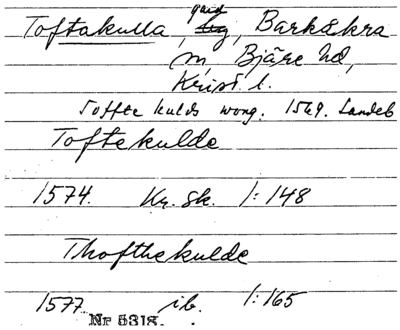 Toftakulla, gård, Barkåkra
sn, Bjäre hd,
Krist. l.
Toffte kulds wong. 1569. Landeb
Toftekulde
1574. Kr. Sk. 1:148
Thofthekulde
1577. ib. 1:165
Nr 5318.